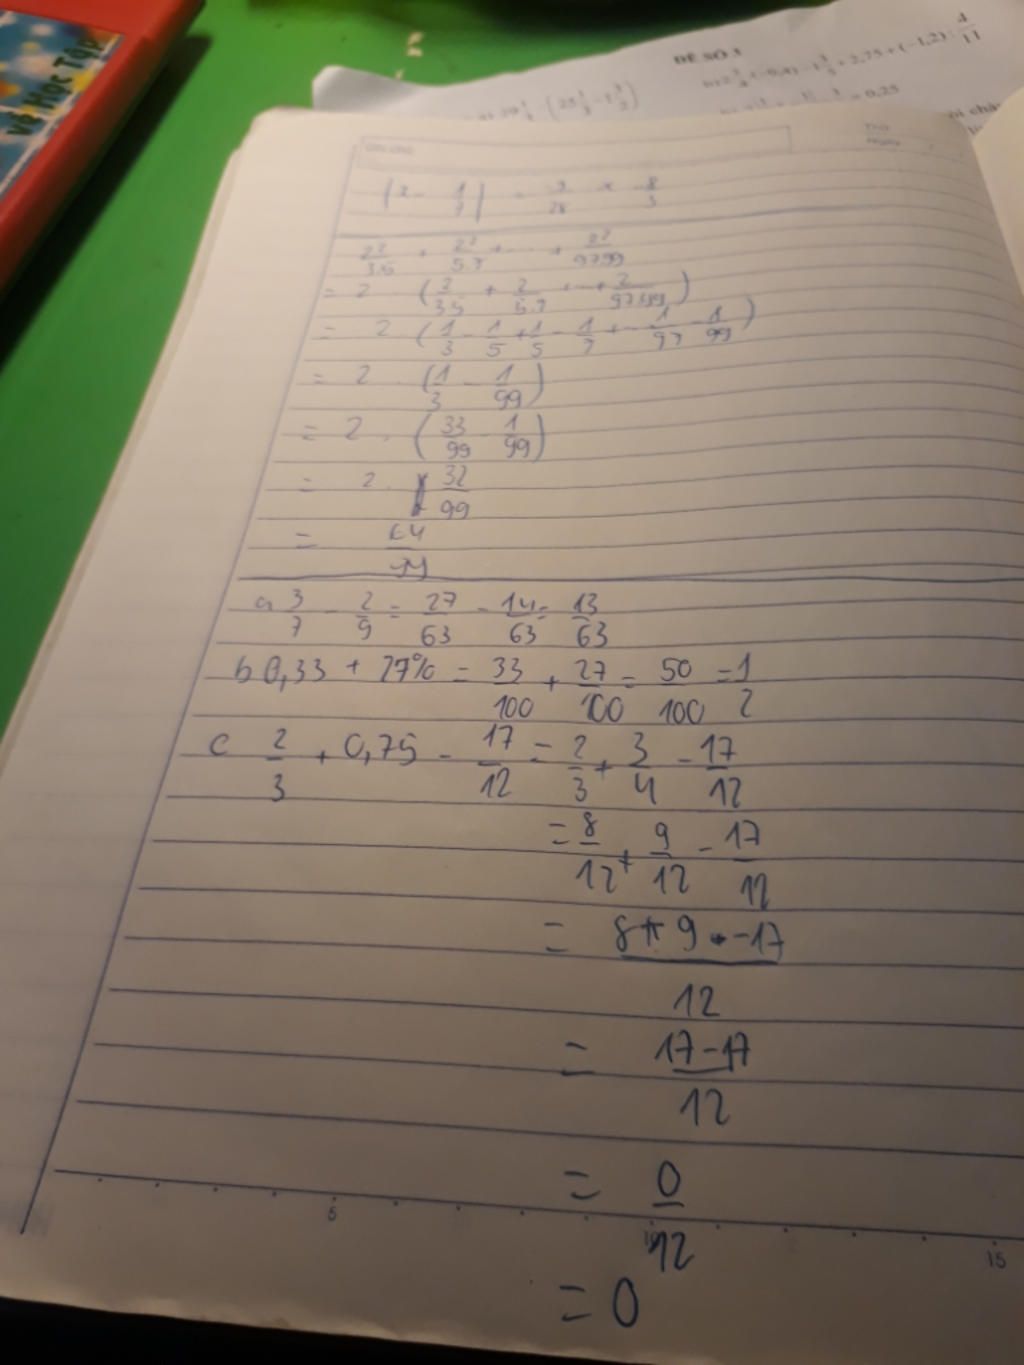 Vở Học Tập
ĐỀ SỐ 3
= 0,25
Thứ
Ngày
|x - 1/7| = × -8/3
2²/3.5 + 2²/5.7 + ... + 2²/97.99
= 2 (2/3.5 + 2/5.7 + ... + 2/97.99)
= 2 (1/3 - 1/5 + 1/5 - 1/7 + - 1/97 - 1/99)
= 2 . (1/3 - 1/99)
= 2 . (33/99 - 1/99)
= 2 . 32/99
= 64/99
a 3/7 - 2/9 = 27/63 - 14/63 = 13/63
b 0,33 + 27% = 33/100 + 27/100 = 50/100 = 1/2
c 2/3 + 0,75 - 17/12 = 2/3 + 3/4 - 17/12
= 8/12 + 9/12 - 17/12
= 8 + 9 - 17/12
= 17 - 17/12
= 0/12
= 0
5 10 15